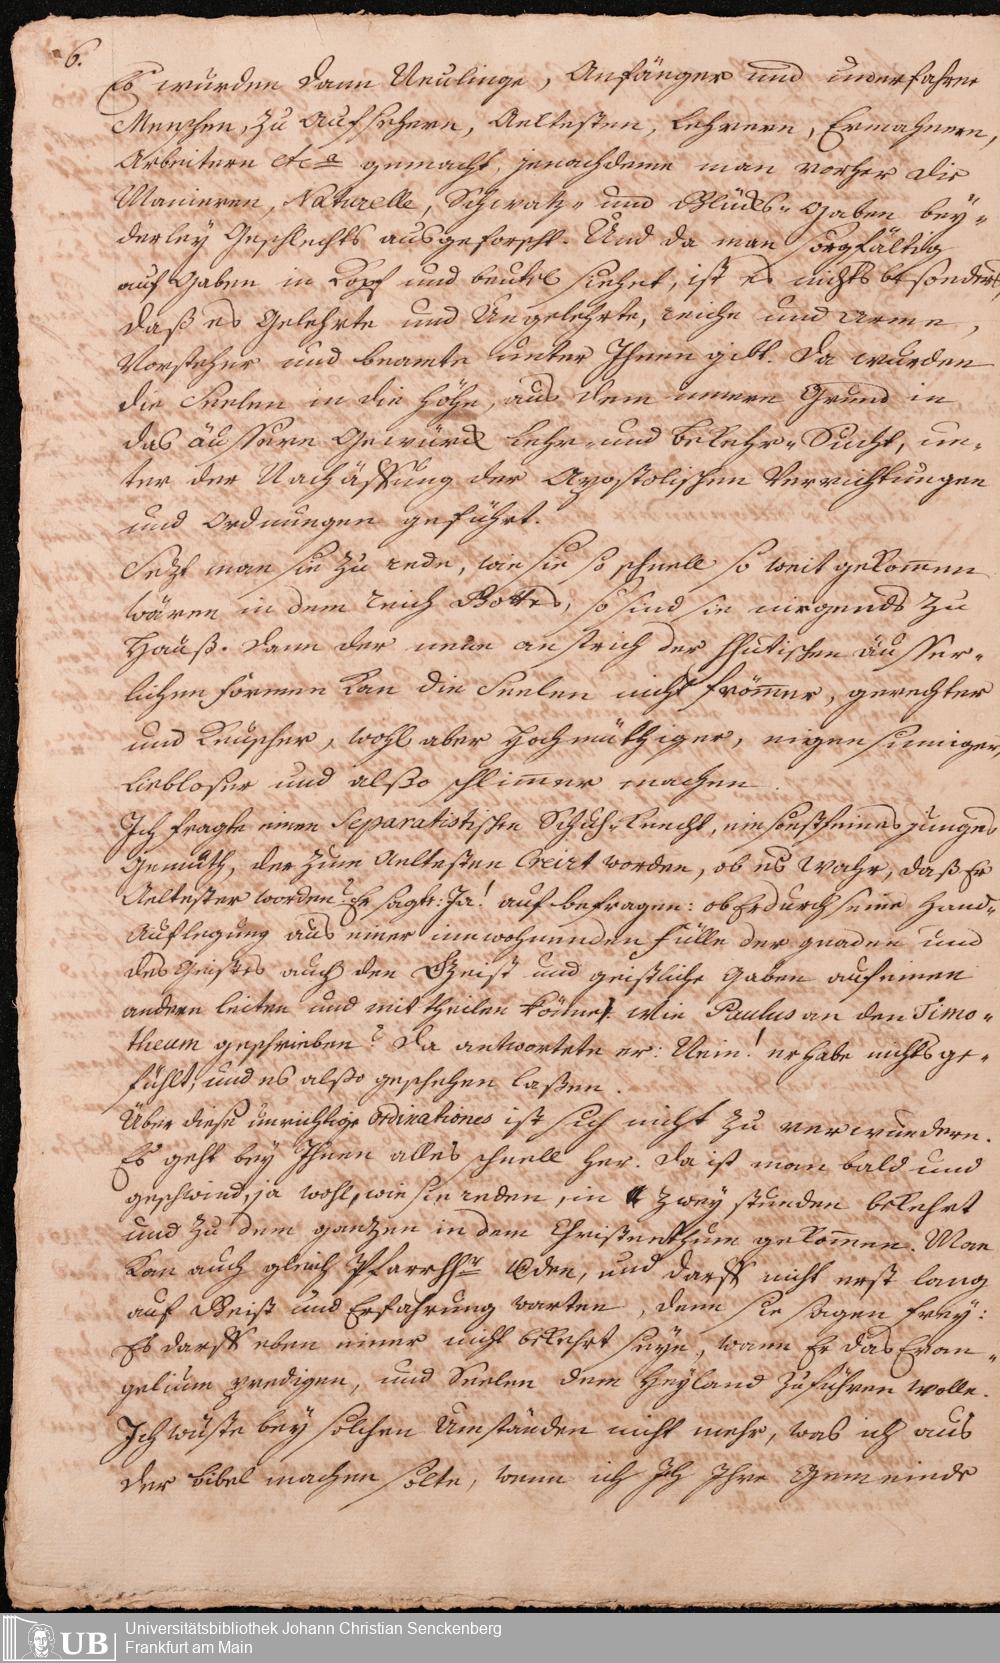 6.
Es wurden dann Neulinge, Anfänger und unerfahrne
Menschen, zu Aufsehern, Aeltesten, Lehrern, Ermahnern,
Arbeitern etca gemacht, jenachdeme man vorher die
Manieren, Naturelle, Schwatz- und Glücks-Gaben bey-
derley Geschlechts ausgeforscht. Und da man sorgfältig
auf Gaben in Kopf und beutel siehet, ist es nichts besonders,
daß es Gelehrte und Ungelehrte, reiche und Arme,
Vorsteher und beamte unter Ihnen gibt. Da wurden
die Seelen in die Höhe, aus dem innern Grund in
das äussere Gewürck Lehr- und bekehr-Sucht, un-
ter der Nachäffung der Apostolischen Verrichtungen
und Ordnungen geführt.
Setzt man sie zu rede, wie sie so schnell so weit gekommen
wären in dem Reich Gottes, so sind sie nirgends zu
Hauß. Dann der neue anstrich der Hhutischen äusser-
lichen formen kan die Seelen nicht frömmer, gerechter
und keuscher, wohl aber Hochmüthiger, eigensinniger,
Liebloser und also schlimmer machen.
Ich fragte einen Separatistischen Schuh-Knecht, ein junges
Gemüth, der zum Aeltesten Creirt worden, ob es wahr, daß Er
Aeltester worden? Er sagte: Ja! auf befragen: ob Er durch seine Hand-
Auflegung aus einer innwohnenden Fülle der gnaden und
des Geistes auch den Geist und geistliche Gaben auf einen
andern leiten und mittheilen könne? wie Paulus an den Timo-
theum geschrieben? Da antwortete er: Nein! er habe nichts ge-
fühlt, und es also geschehen laßen.
Über diese unrichtige Ordinationes ist sich nicht zu verwundern.
Es geht bey Ihnen alles schnell her. Da ist man bald und
geschwind, ja wohl, wie sie reden, in zwey stunden bekehrt
und zu dem gantzen in dem Christenthum gekommen. Man
kan auch gleich Pfarrhr werden, und darff nicht erst lang
auf Geist und Erfahrung warten, denn sie sagen frey:
Es darff eben einer nicht bekehrt seyn, wann Er das Evan-
gelium predigen, und Seelen dem Heyland zuführen wolle.
Ich wüste bey solchen Umständen nicht mehr, was ich aus
der Bibel machen solte, wenn ich Ihre Gemeinde
Universitätsbibliothek Johann Christian Senckenberg
UB
Frankfurt am Main